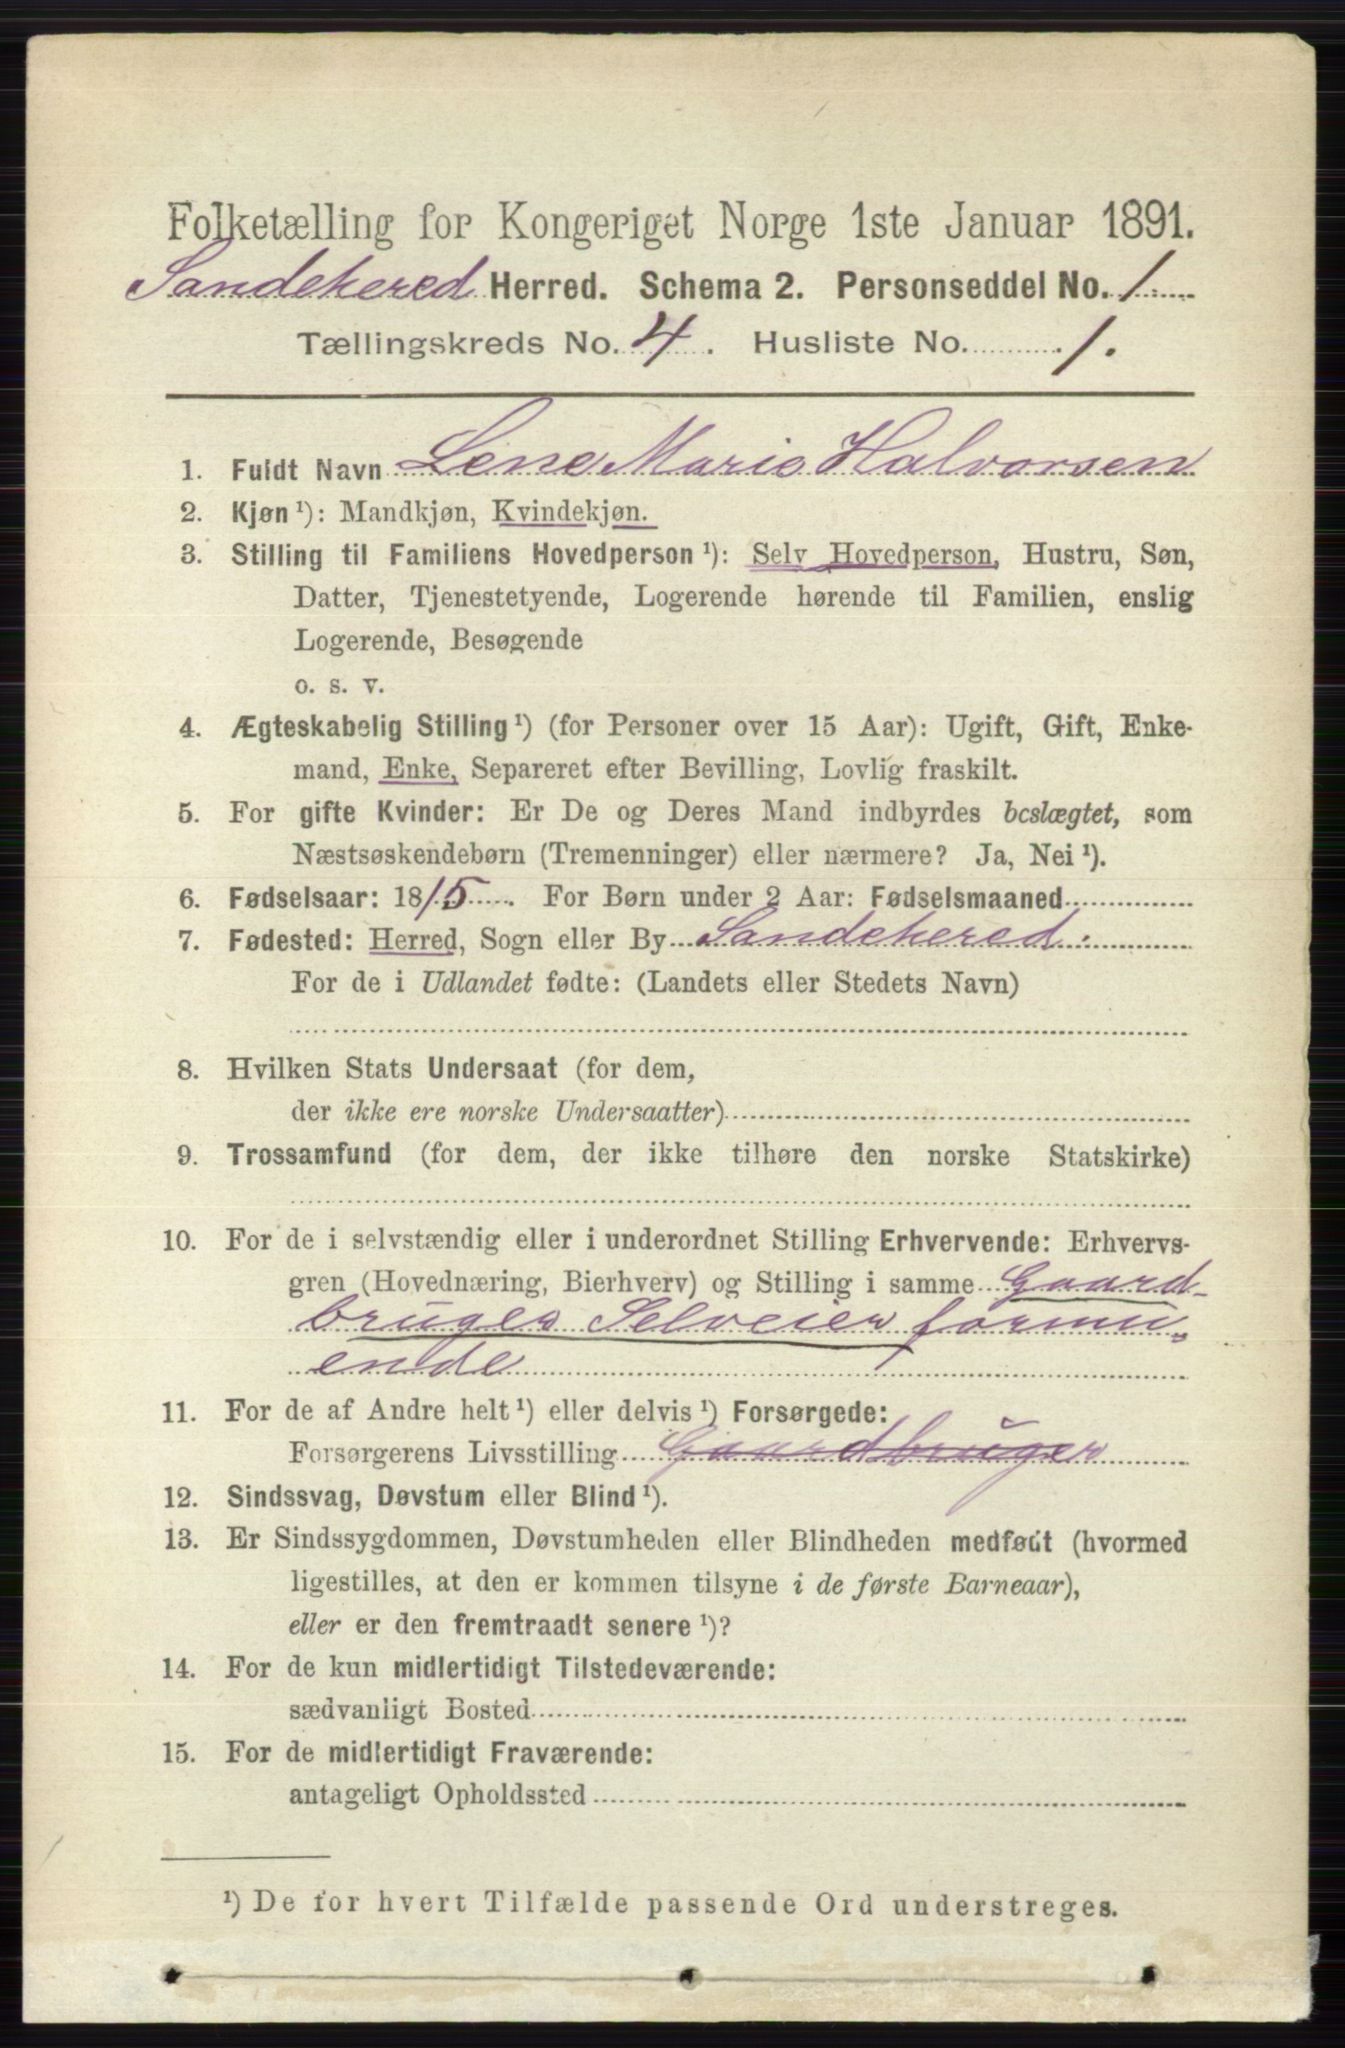 Folketælling for Kongeriget Norge 1ste Januar 1891.
Sandehered Herred. Schema 2. Personseddel No. 1
Tællingskreds No. 4. Husliste No. 1.
1. Fuldt Navn Lene Marie Halvorsen
2. Kjøn ¹): Mandkjøn, Kvindekjøn.
3. Stilling til Familiens Hovedperson ¹): Selv Hovedperson, Hustru, Søn,
Datter, Tjenestetyende, Logerende hørende til Familien, enslig
Logerende, Besøgende
o. s. v.
4. Ægteskabelig Stilling ¹) (for Personer over 15 Aar): Ugift, Gift, Enke-
mand, Enke, Separeret efter Bevilling, Lovlig fraskilt.
5. For gifte Kvinder: Er De og Deres Mand indbyrdes beslægtet, som
Næstsøskendebørn (Tremenninger) eller nærmere? Ja, Nei ¹).
6. Fødselsaar: 1815. For Børn under 2 Aar: Fødselsmaaned
7. Fødested: Herred, Sogn eller By Sandehered.
For de i Udlandet fødte: (Landets eller Stedets Navn)
8. Hvilken Stats Undersaat (for dem,
der ikke ere norske Undersaatter)
9. Trossamfund (for dem, der ikke tilhøre den norske Statskirke)
10. For de i selvstændig eller i underordnet Stilling Erhvervende: Erhvervs-
gren (Hovednæring, Bierhverv) og Stilling i samme Gaard-
bruger Selveier formu-
ende
11. For de af Andre helt ¹) eller delvis ¹) Forsørgede:
Forsørgerens Livsstilling Gaardbruger
12. Sindssvag, Døvstum eller Blind ¹).
13. Er Sindssygdommen, Døvstumheden eller Blindheden medfødt (hvormed
ligestilles, at den er kommen tilsyne i de første Barneaar),
eller er den fremtraadt senere ¹)?
14. For de kun midlertidigt Tilstedeværende:
sædvanligt Bosted
15. For de midlertidigt Fraværende:
antageligt Opholdssted
¹) De for hvert Tilfælde passende Ord understreges.